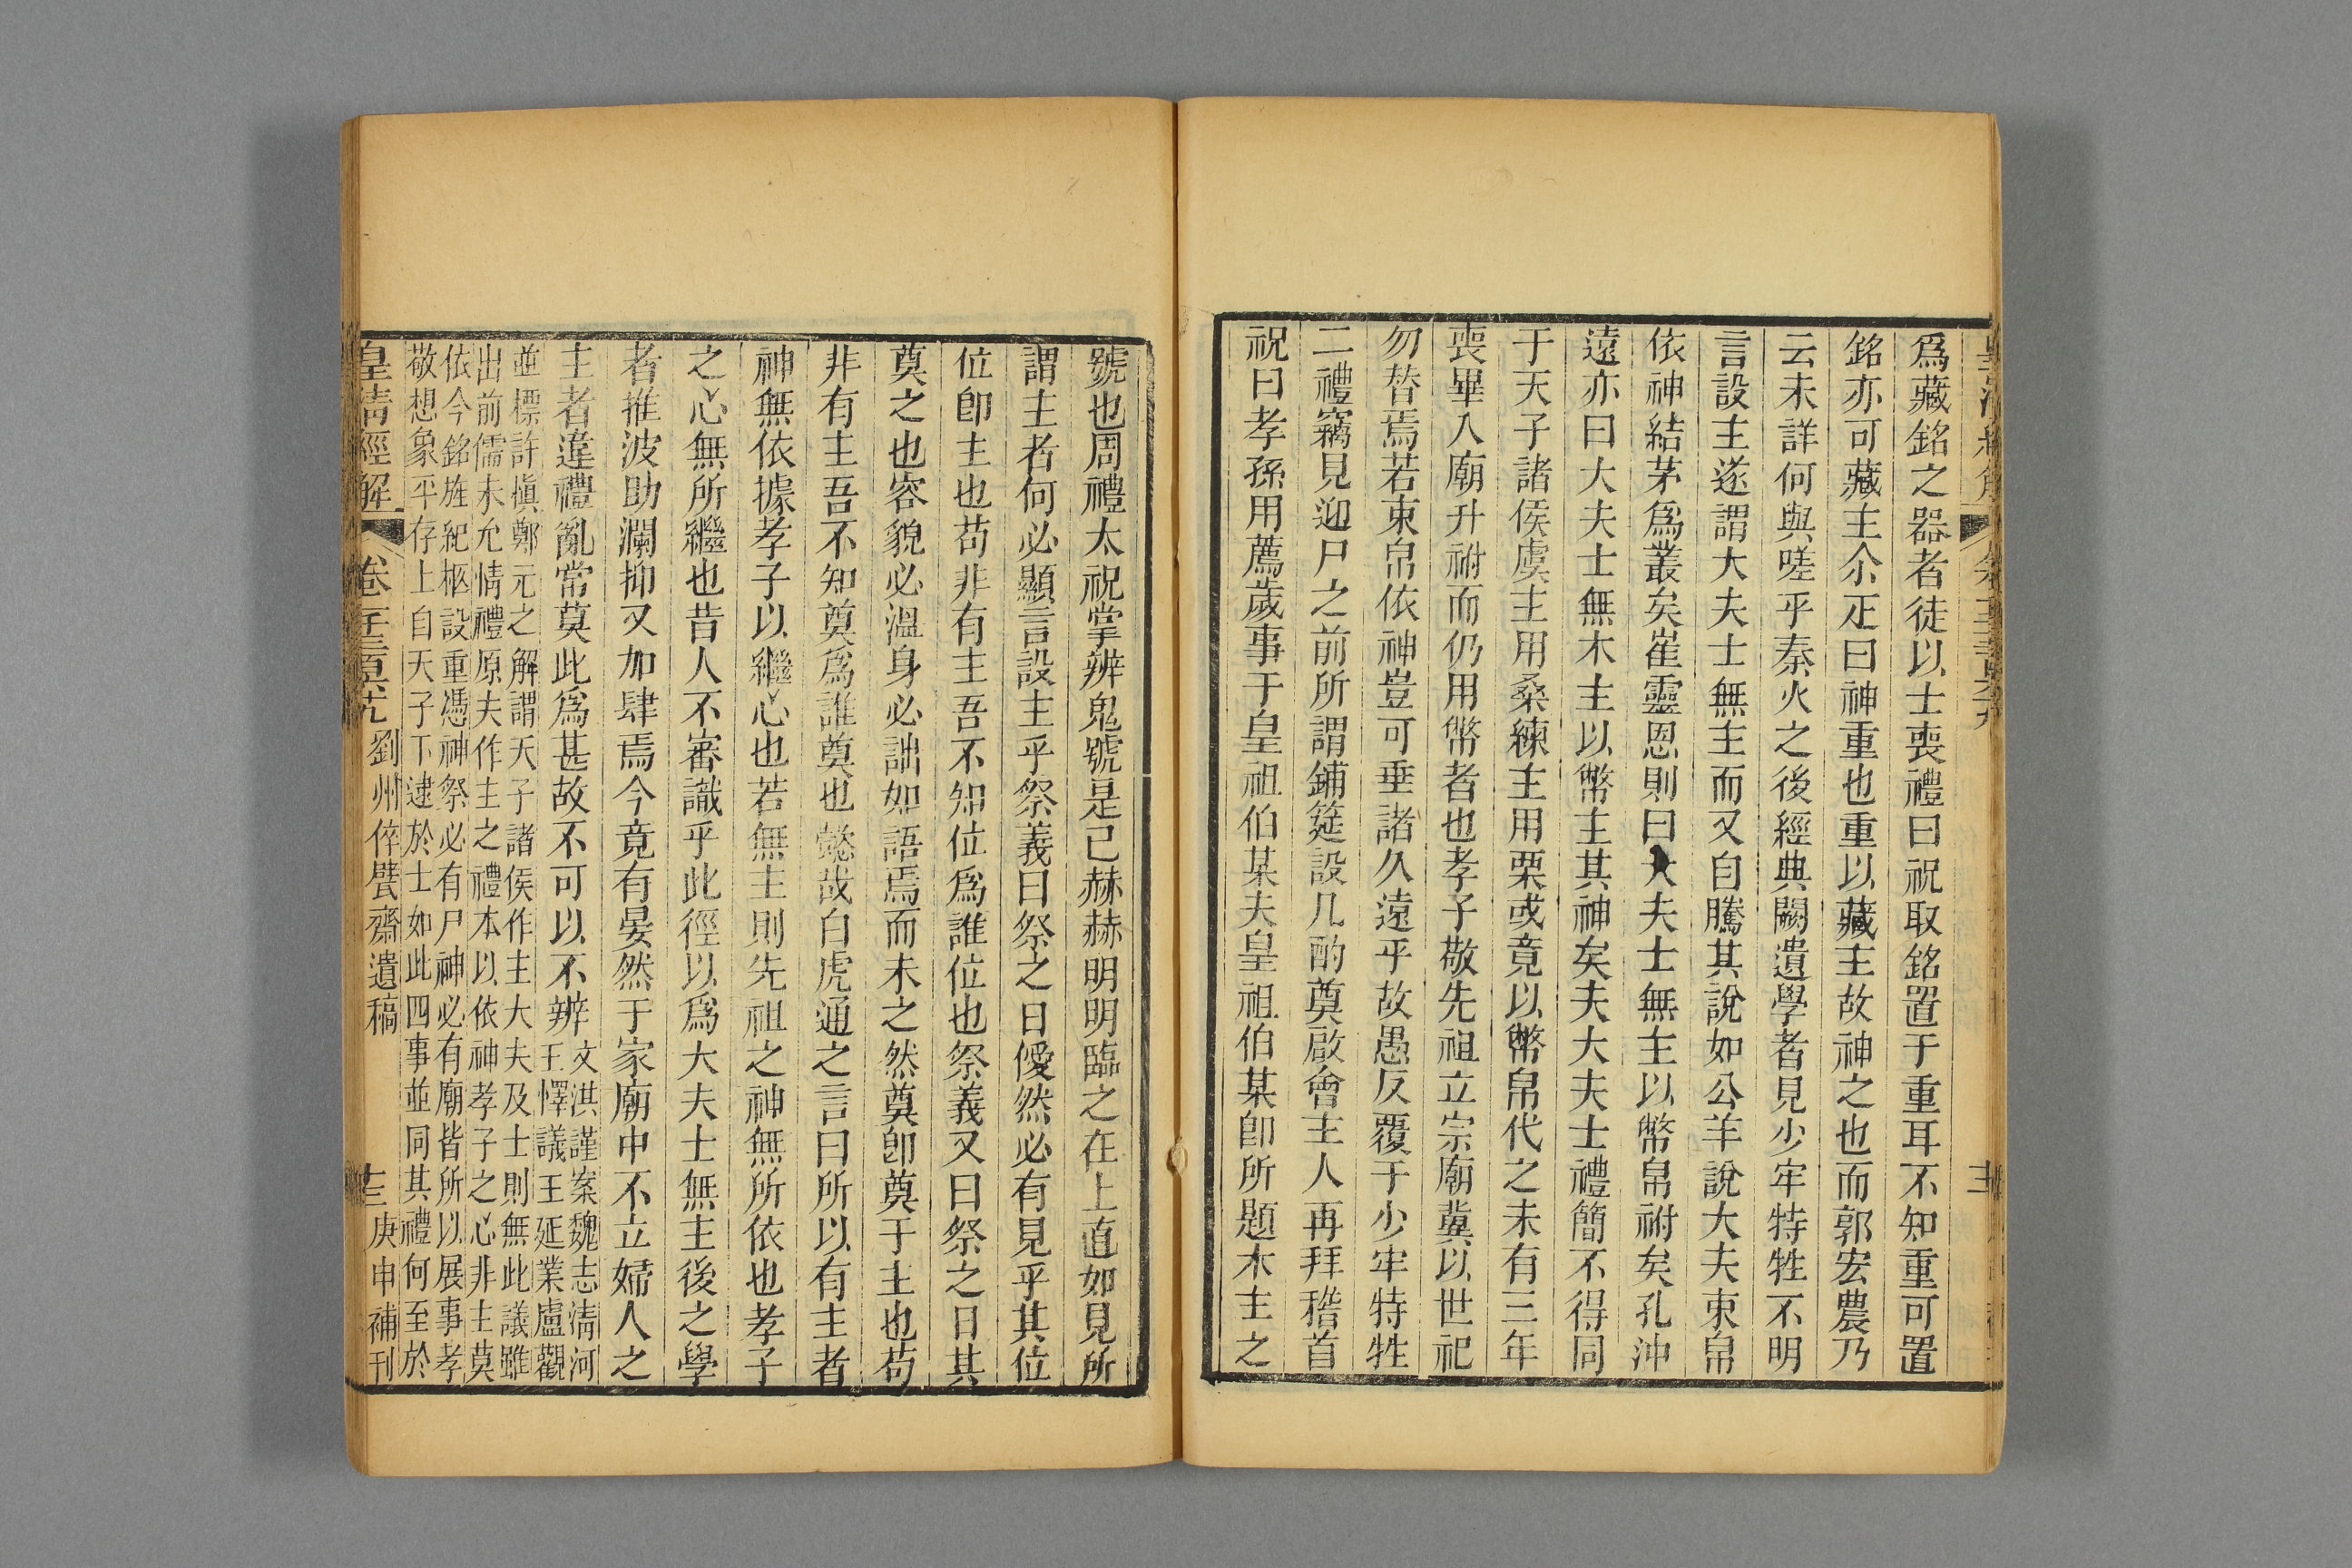 爲藏銘之器者徒以士喪禮曰祝取銘置于重耳不知重可置
銘亦可藏主尒疋曰神重也重以藏主故神之也而郭宏農乃
云未詳何與嗟乎秦火之後經典闕遺學者見少牢特牲不明
言設主遂謂大夫士無主而又自騰其說如公羊說大夫束帛
依神結茅爲叢矣崔靈恩則曰大夫士無主以幣帛祔矣孔沖
遠亦曰大夫士無木主以幣主其神矣夫大夫士禮簡不得同
于天子諸侯虞主用桑練主用栗或竟以幣帛代之未有三年
喪畢入廟升祔而仍用幣者也孝子敬先祖立宗廟冀以世祀
勿替焉若束帛依神豈可垂諸久遠乎故愚反覆于少牢特牲
二禮竊見迎尸之前所謂鋪筵設几酌奠啟會主人再拜稽首
祝曰孝孫用薦歲事于皇祖伯某夫皇祖伯某卽所題木主之
號也周禮太祝掌辨鬼號是已赫赫明明臨之在上直如見所
謂主者何必顯言設主乎祭義曰祭之日僾然必有見乎其位
位卽主也苟非有主吾不知位爲誰位也祭義又曰祭之日其
奠之也容貌必溫身必詘如語焉而未之然奠卽奠于主也苟
非有主吾不知奠爲誰奠也懿哉白虎通之言曰所以有主者
神無依據孝子以繼心也若無主則先祖之神無所依也孝子
之心無所繼也昔人不審識乎此徑以爲大夫士無主後之學
者推波助瀾抑又加肆焉今竟有晏然于家廟中不立婦人之
主者違禮亂常莫此爲甚故不可以不辨
文淇謹案魏志淸河
王懌議王延業盧觀
並標許愼鄭元之解謂天子諸侯作主大夫及士則無此議雖
出前儒未允情禮原夫作主之禮本以依神孝子之心非主莫
依今銘旌紀柩設重憑神祭必有尸神必有廟皆所以展事孝
敬想象平存上自天子下逮於士如此四事並同其禮何至於
皇淸經解
劉州倅甓齋遺稿
庚申補刊